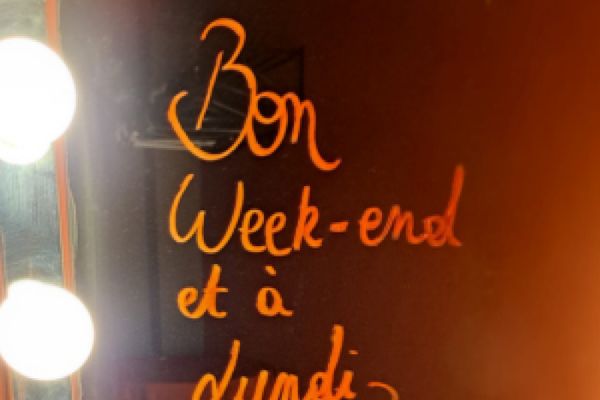 Bon
Week-end
et à
Lundi